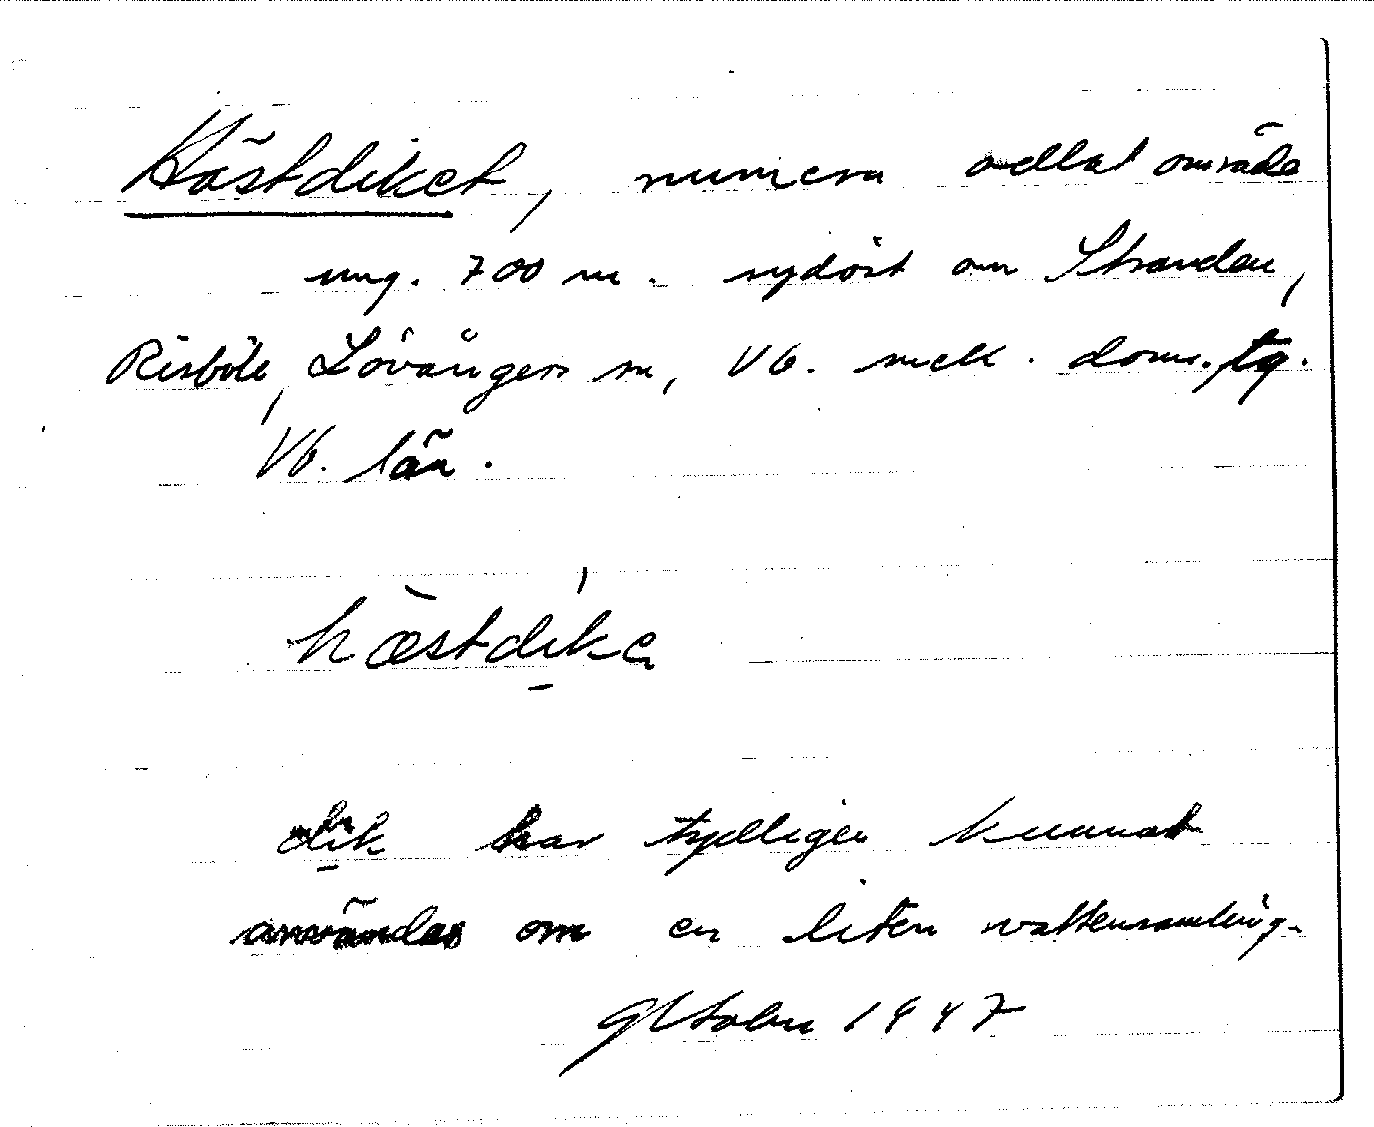 Hästdiket, numera odlat område
ung. 700 m. sydöst om Stranden,
Risböle, Lövångers sn, Vb. mell. doms. tg.
Vb. län.
hæ̀stdíka
dik har tydligen kunnat
användas om en liten vattensamling.
1947